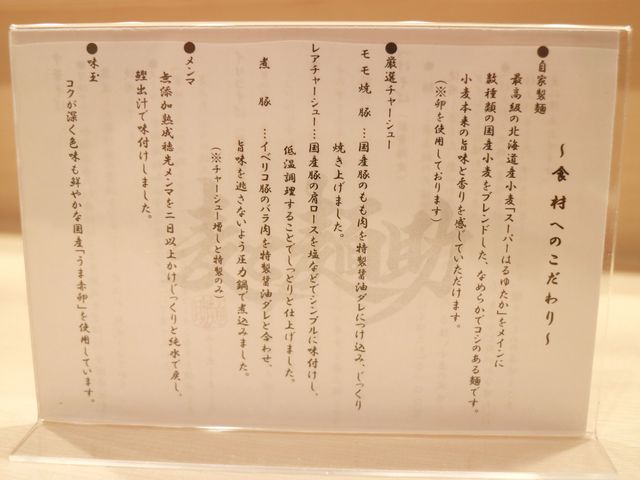 ～食材へのこだわり～
●自家製麺
最高級の北海道産小麦「スーパーはるゆたか」をメインに
数種類の国産小麦をブレンドした、なめらかでコシのある麺です。
小麦本来の旨味と香りを感じていただけます。
（※卵を使用しております）
●厳選チャーシュー
モモ焼豚…国産豚のもも肉を特製醤油ダレにつけ込み、じっくり
焼き上げました。
レアチャーシュー…国産豚の肩ロースを塩などでシンプルに味付けし、
低温調理することでしっとりと仕上げました。
煮豚…イベリコ豚のバラ肉を特製醤油ダレと合わせ、
旨味を逃さないよう圧力鍋で煮込みました。
（※チャーシュー増しと特製のみ）
●メンマ
無添加熟成穂先メンマを二日以上かけじっくりと純水で戻し、
鰹出汁で味付けしました。
●味玉
コクが深く色味も鮮やかな国産「うま赤卵」を使用しています。